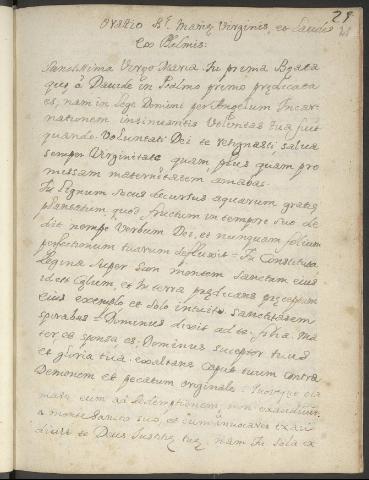 29
Oratio Bt. Mariæ Virginis, et Laudes
Ex Psalmis:
Sanctissima Virgo Maria. Tu prima Beata
quę à Dauide in Psalmo primo prędicata
es, nam in lege Domini per Angelum Incar-
nationem insinuantis Voluntas tua fuit
quando. Voluntati Dei te resignasti, salua
semper Virginitate quam plus quam pro
missam maternitatem, amabas.
Tu lignum secus decursus aquarum gratię
plantatum, quod fructum in tempore suo de
dit nempe Verbum Dei, et nunquam folium
perfectionum tuarum defluxit = Tu Constituta
Regina super Sion montem Sanctum eius
id est Cęlum, et in terra prędicans pręceptum
eius exemplo et solo intuitu sanctitatem
spirabas = Dominus dixit ad te filia Ma
ter et sponsa es. Dominus suceptor tuus
et gloria tua exaltans caput tuum contra
Demonem et pecatum originale =
eum ad Redemptionem, non exaudiuit
a monte sancto suo, et cum inuocares exau
diuit te Deus Iustitię tuę, nam Tu sola ex